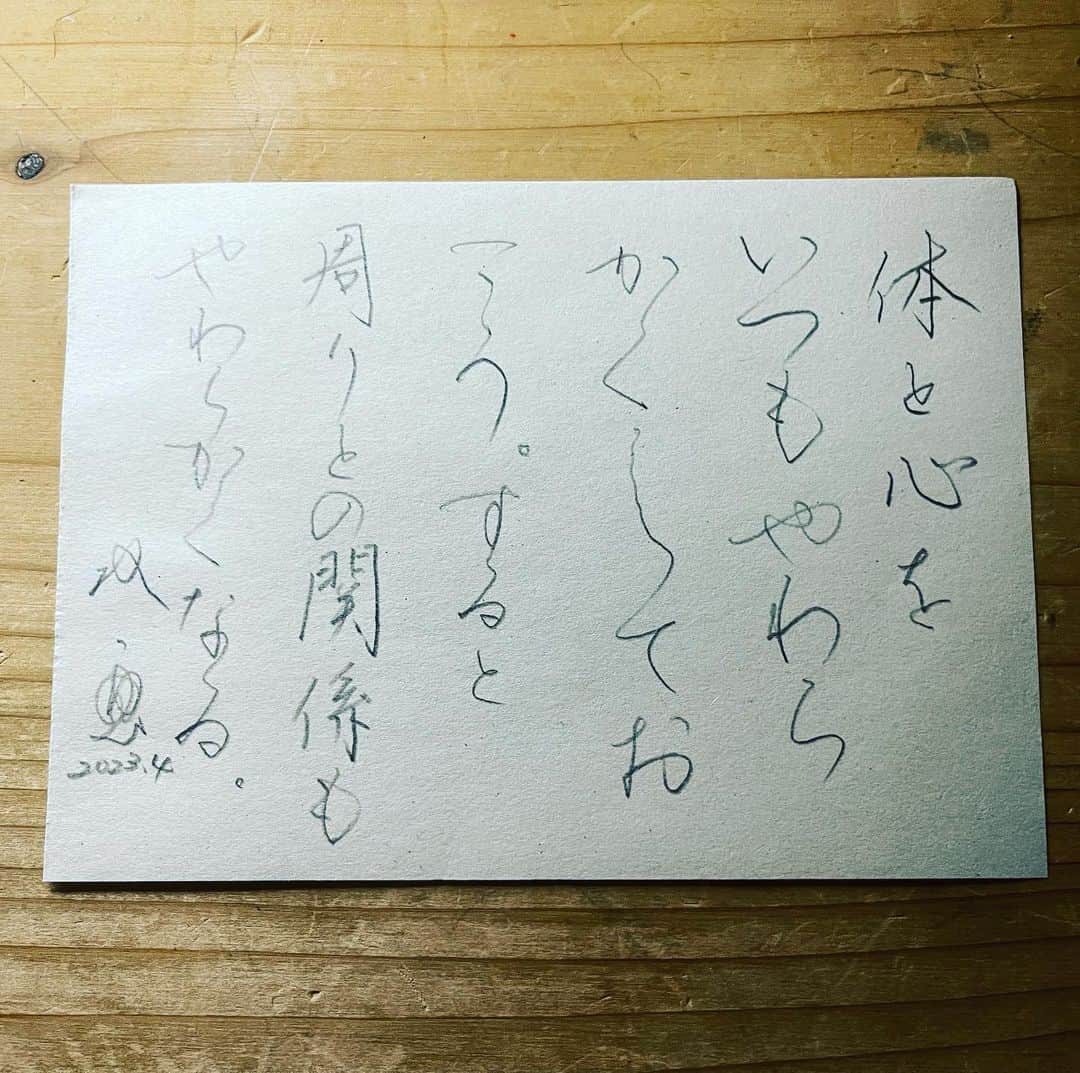 体と心を
いつもやわら
かくしてお
こう。すると
周りとの関係も
やわらかくなる。
2023.4